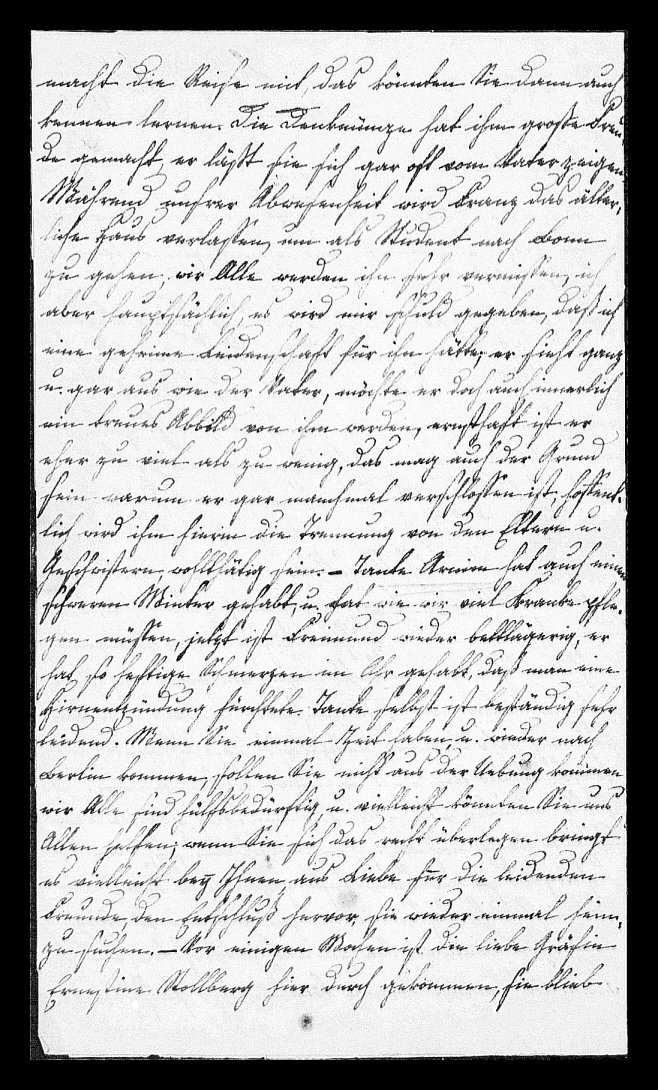 macht die Reise mit, das könnten Sie dann auch
kennen lernen. Die Denkmünze hat ihm große Freu
de gemacht, er läßt sie sich gar oft vom Vater zeigen.
Während unsrer Abwesenheit wird Franz das älter,
liche Haus verlassen, um als Student nach Bonn
zu gehen, wir Alle werden ihn sehr vermissen, ich
aber hauptsächlich, es wird mir schuld gegeben, daß ich
eine geheime Leidenschaft für ihn hätte; er sieht ganz
u. gar aus wie der Vater, möchte er doch auch innerlich
ein treues Abbild von ihm werden, ernsthaft ist er
eher zu viel als zu wenig, das mag auch der Grund
sein warum er gar manchmal verschlossen ist. hoffent,
lich wird ihm hierin die Trennung von den Eltern u.
Geschwistern, wohlthätig sein. – Tante Arnim hat auch einen
schweren Winter gehabt, u. hat wie wir viel Kranke pfle,
gen müssen, jetzt ist Freimund wieder bettlägerig, er
hat so heftige Schmerzen im Ohr gehabt, daß man eine
Hirnentzündung fürchtete. Tante selbst ist beständig sehr
leidend. Wenn Sie einmal Zeit haben, u. wieder nach
Berlin kommen, sollen Sie nicht aus der Uebung kommen
wir Alle sind hülfsbedürftig, u. vielleicht könnten Sie uns
Allen helfen; wenn Sie sich das recht überlegen bringt
es vielleicht bey Ihnen, aus Liebe für die leidenden
Freunde, den Entschluß hervor, sie wieder einmal heim,
zu suchen. – Vor einigen Wochen ist die liebe Gräfin
Ernestine Stollberg hier durch gekommen, sie blieb